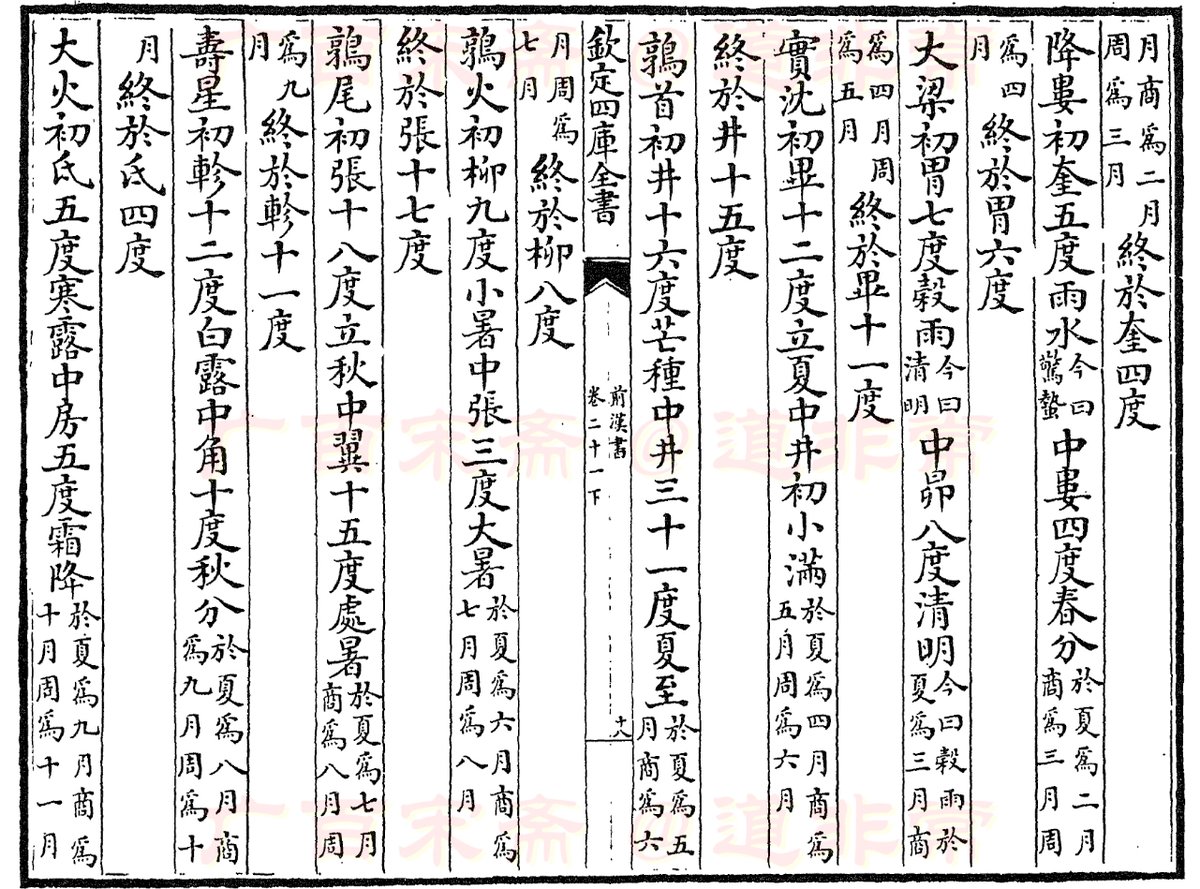 月商為二月周為三月終於奎四度
降婁初奎五度雨水今曰驚蟄中婁四度春分於夏為二月商為三月周
為四月終於胃六度
大梁初胃七度穀雨今曰清明中昴八度清明今曰穀雨於夏為三月商
為四月周為五月終於畢十一度
實沈初畢十二度立夏中井初小滿於夏為四月商為五月周為六月
終於井十五度
鶉首初井十六度芒種中井三十一度夏至於夏為五月商為六
欽定四庫全書 前漢書卷二十一下 十八
月周為七月終於柳八度
鶉火初柳九度小暑中張三度大暑於夏為六月商為七月周為八月
終於張十七度
鶉尾初張十八度立秋中翼十五度處暑於夏為七月商為八月周
為九月終於軫十一度
壽星初軫十二度白露中角十度秋分於夏為八月商為九月周為十
月終於氐四度
大火初氐五度寒露中房五度霜降於夏為九月商為十月周為十一月
亡百宋斋@道非常
亡百宋斋@道非常
亡百宋斋@道非常